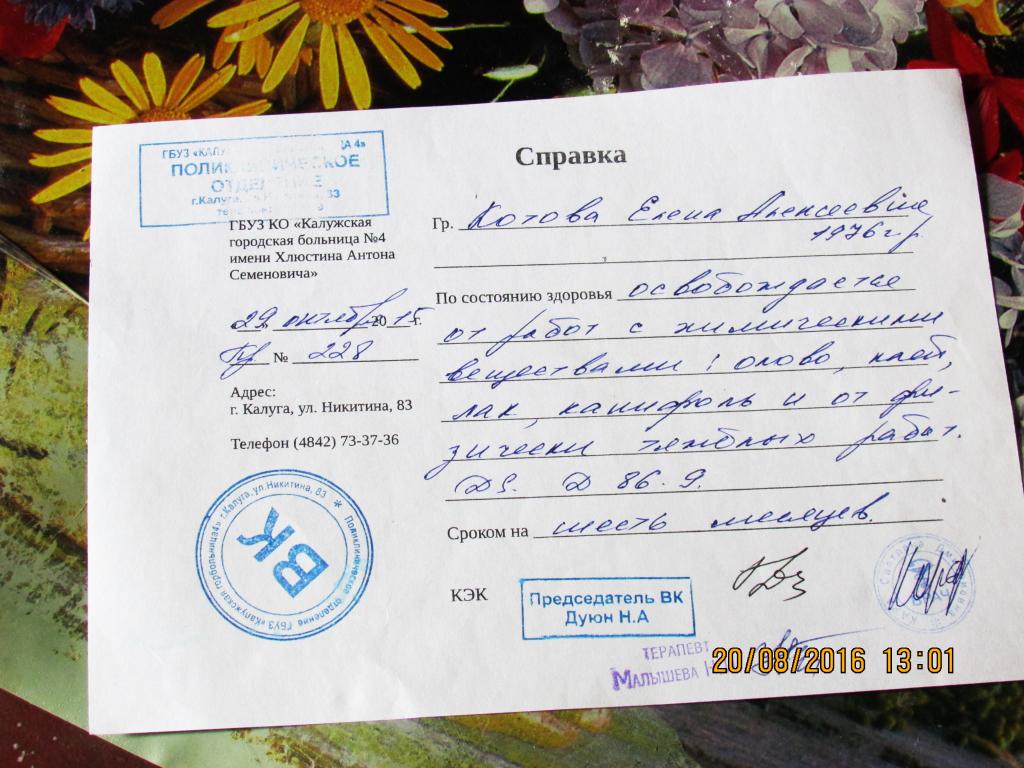 ГБУЗ «КАЛУ
А 4»
ПОЛИКЛИНИЧЕСКОЕ
ОТДЕЛЕНИЕ
г.Калуга 83
ГБУЗ КО «Калужская
городская больница №4
имени Хлюстина Антона
Семеновича»
29 октября 2015 г.
№ 228
Адрес:
г. Калуга, ул. Никитина, 83
Телефон (4842) 73-37-36
Поликлиническое отделение ГБУЗ «Калужская горбольница4» г.Калуга, ул.Никитина, 83
ВК
Справка
Гр. Котова Елена Алексеевна
1976 г.р
По состоянию здоровья освобождается
от работ с химическими
веществами: олово, клей,
лак, канифоль и от фи-
зически тяжёлых работ.
DS. D 86.9.
Сроком на шесть месяцев.
КЭК
Председатель ВК
Дуюн Н.А
ТЕРАПЕВТ
МАЛЫШЕВА Н
20/08/2016 13:01